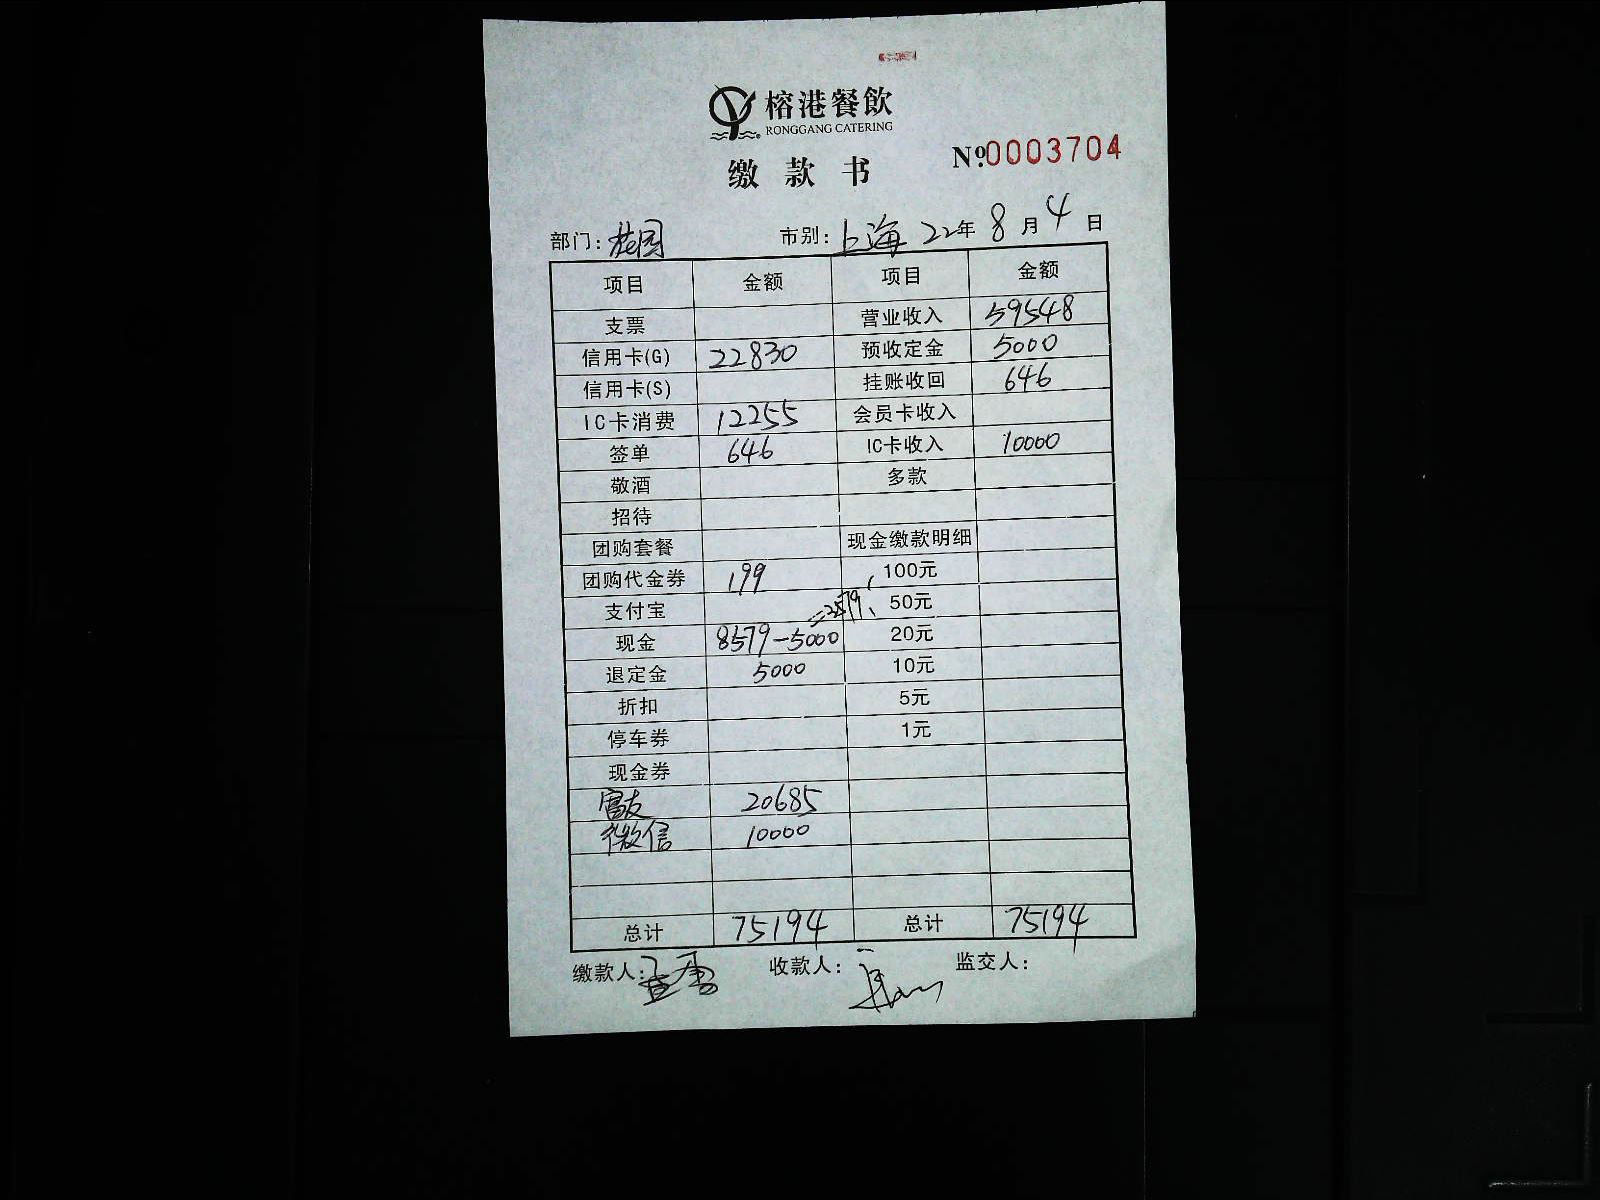 榕港餐飲
RONGGANG CATERING
缴款书
Nº 0003704
部门: 桂园 市别: 上海 22年 8月 4日
项目 金额 项目 金额
支票 营业收入 59548
信用卡(G) 22830 预收定金 5000
信用卡(S) 挂账收回 646
IC卡消费 12255 会员卡收入
签单 646 IC卡收入 10000
敬酒 多款
招待
团购套餐 现金缴款明细
团购代金券 199 100元
支付宝 50元
现金 8579-5000 =3579 20元
退定金 5000 10元
折扣 5元
停车券 1元
现金券
富友 20685
微信 10000
总计 75194 总计 75194
缴款人: 收款人: 监交人: